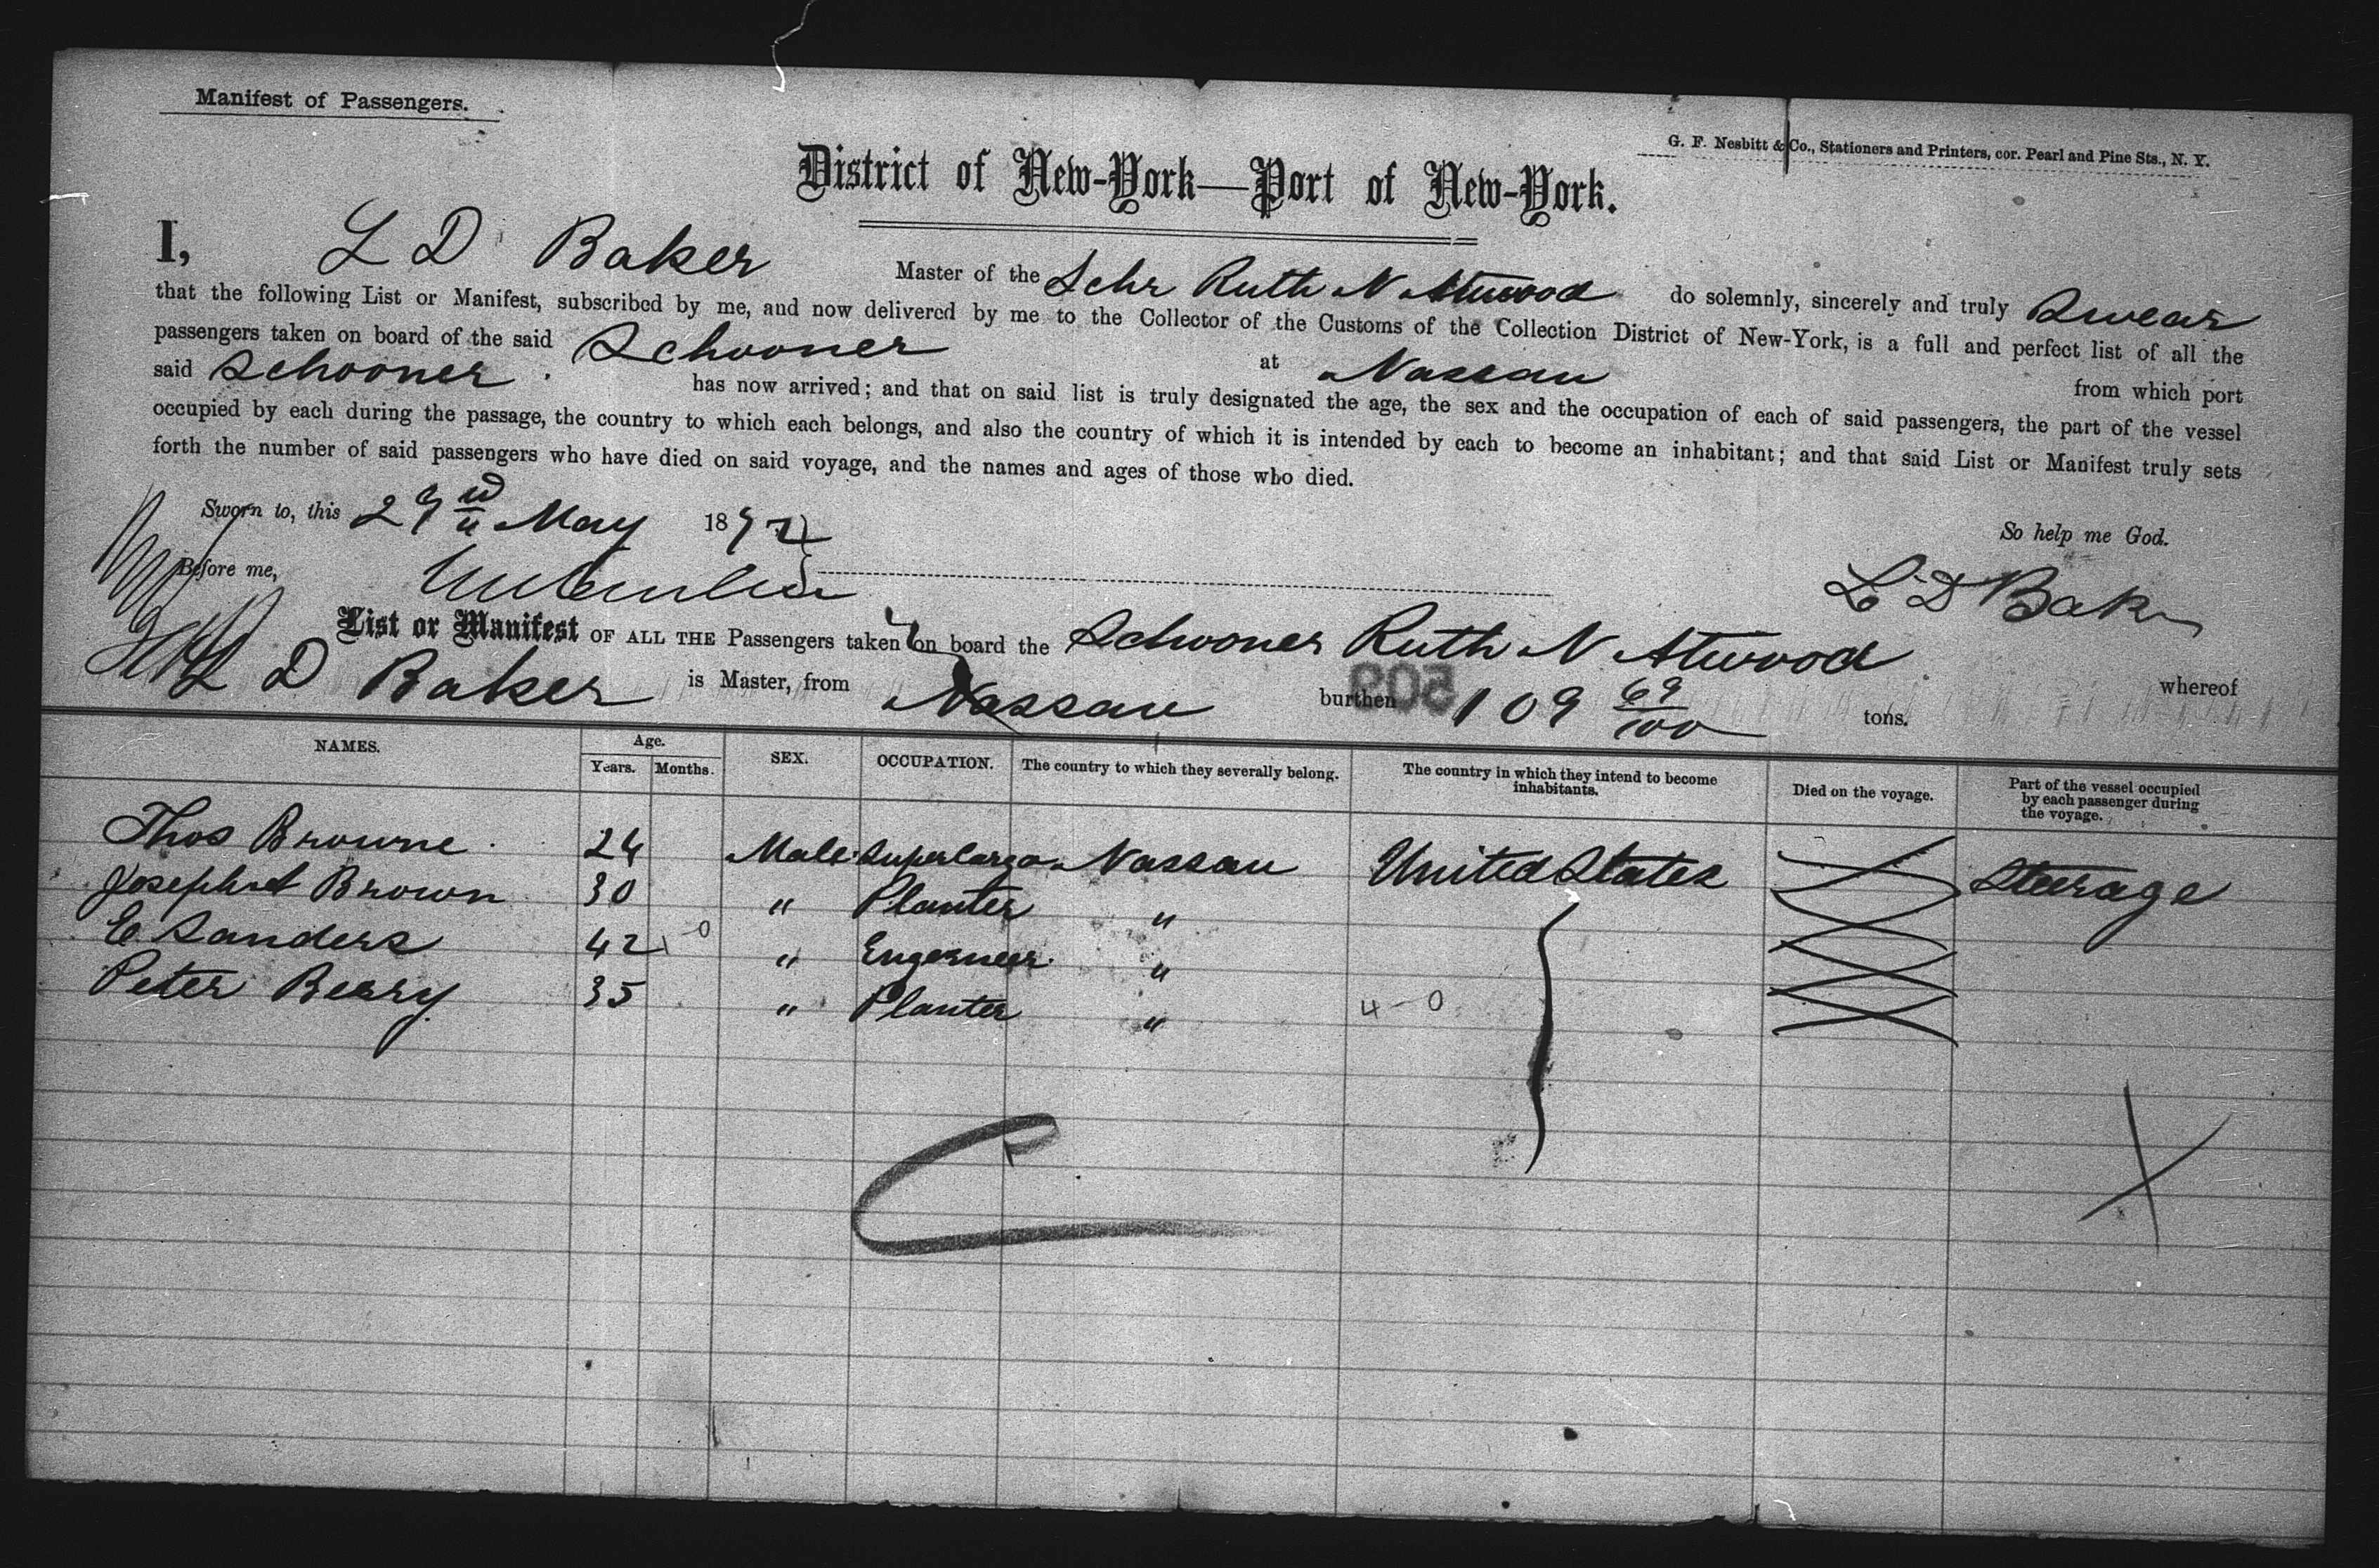 Manifest of Passengers.
G. F. Nesbitt & Co., Stationers and Printers, cor. Pearl and Pine Sts., N. Y.
District of New-York—Port of New-York.
I, L D Baker Master of the Schr Ruth N Atwood do solemnly, sincerely and truly Swear
that the following List or Manifest, subscribed by me, and now delivered by me to the Collector of the Customs of the Collection District of New-York, is a full and perfect list of all the
passengers taken on board of the said Schooner at Nassau from which port
said Schooner has now arrived; and that on said list is truly designated the age, the sex and the occupation of each of said passengers, the part of the vessel
occupied by each during the passage, the country to which each belongs, and also the country of which it is intended by each to become an inhabitant; and that said List or Manifest truly sets
forth the number of said passengers who have died on said voyage, and the names and ages of those who died.
Sworn to, this May 187
So help me God.
Before me,
L D Baker
List or Manifest OF ALL THE Passengers taken on board the Schooner Ruth N Atwood whereof
L D Baker is Master, from Nassau burthen 109 69/100 tons.
509
NAMES. Age. Years. Months. SEX. OCCUPATION. The country to which they severally belong. The country in which they intend to become inhabitants. Died on the voyage. Part of the vessel occupied by each passenger during the voyage.
Thos Browne 24 Male Supercargo Nassau United States Steerage
Brown 30 " Planter "
E Sanders 42 " Engerneer "
Peter Berry 35 " Planter "
4-0